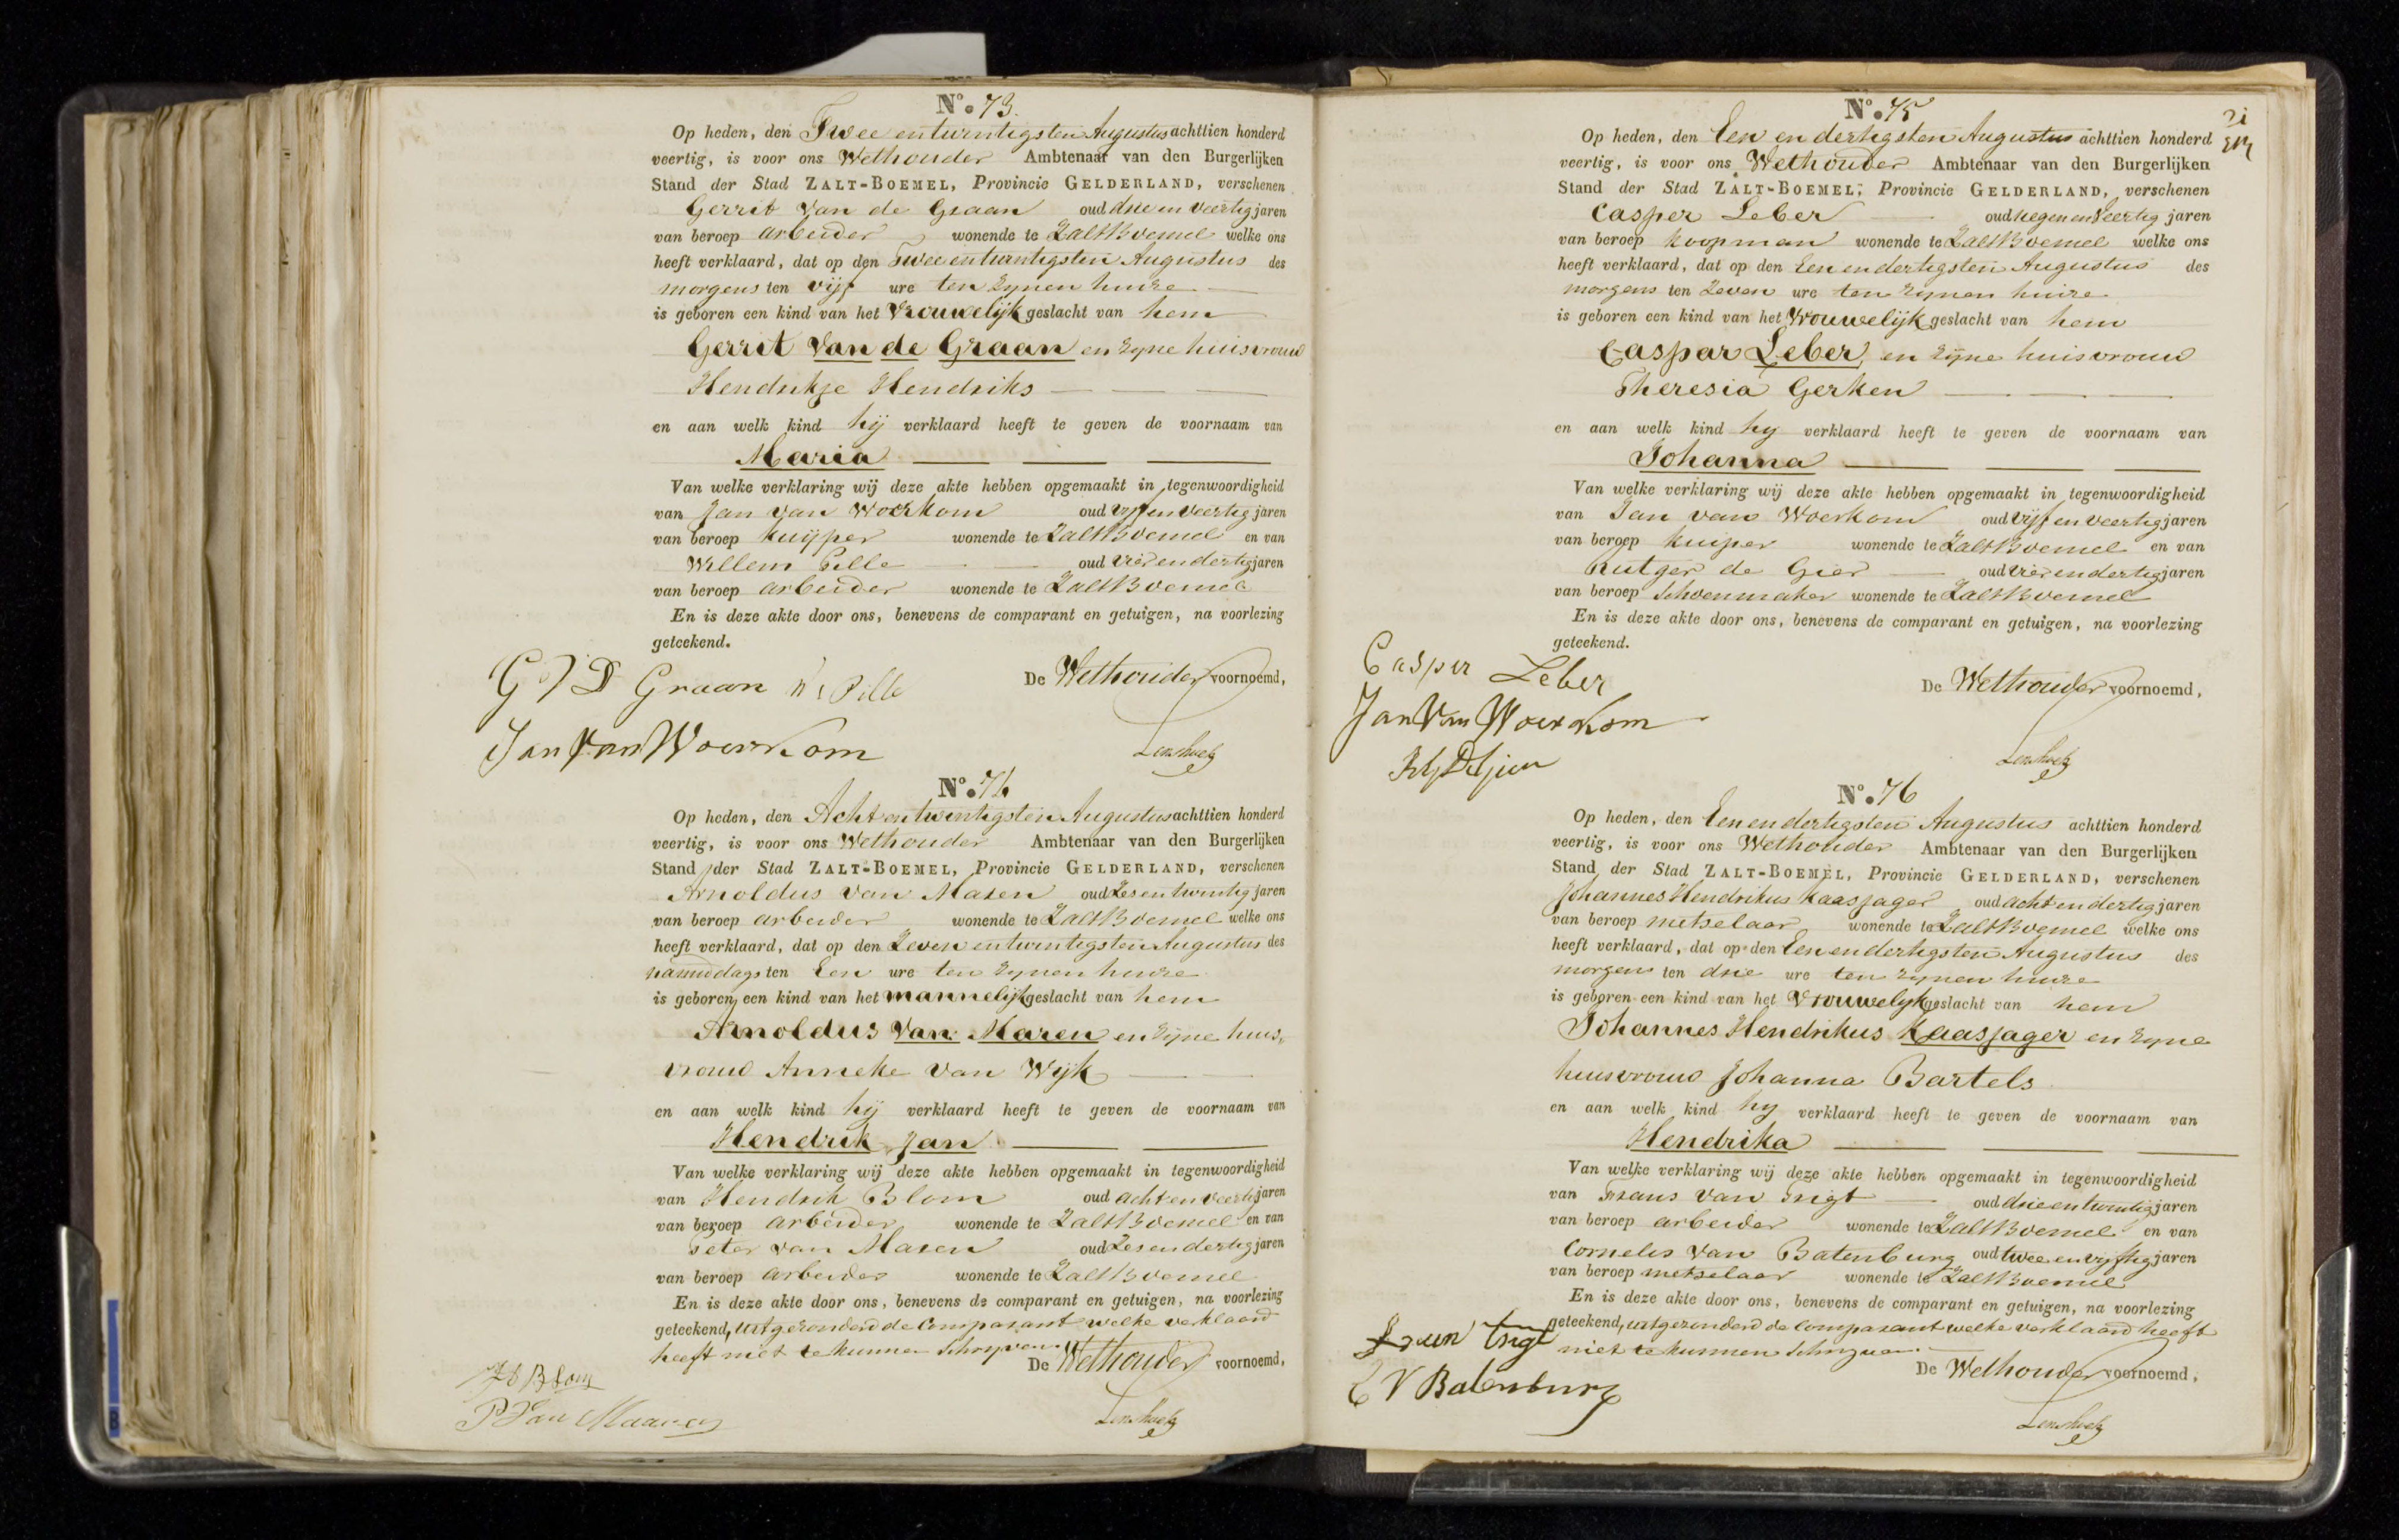 No. 73.
Op heden, den Twee en twintigsten Augustus achttien honderd
veertig, is voor ons Wethouder Ambtenaar van den Burgerlijken
Stand der Stad ZALT-BOEMEL, Provincie GELDERLAND, verschenen
Gerrit van de Graan oud drie en veertig jaren
van beroep arbeider wonende te ZaltBoemel welke ons
heeft verklaard, dat op den Twee en twintigsten Augustus des
morgens ten vijf ure ten zynen huize
is geboren een kind van het Vrouwelijk geslacht van hem
Gerrit van de Graan en zyne huisvrouw
Hendrikje Hendriks
en aan welk kind hij verklaard heeft te geven de voornaam van
Maria
Van welke verklaring wij deze akte hebben opgemaakt in tegenwoordigheid
van Jan van Woerkom oud vijf en veertig jaren
van beroep kuijper wonende te ZaltBoemel en van
Willem Pille oud vier en dertig jaren
van beroep arbeider wonende te ZaltBoemel
En is deze akte door ons, benevens de comparant en getuigen, na voorlezing
geteekend.
De Wethouder voornoemd,
G V D Graan W Pille
Jan Van Woerkom
No. 74
Op heden, den Acht en twintigsten Augustus achttien honderd
veertig, is voor ons Wethouder Ambtenaar van den Burgerlijken
Stand der Stad ZALT-BOEMEL, Provincie GELDERLAND, verschenen
Arnoldus van Maren oud Zes en twintig jaren
van beroep arbeider wonende te ZaltBoemel welke ons
heeft verklaard, dat op den Zeven en twintigsten Augustus des
namiddags ten Een ure ten zynen huize
is geboren een kind van het mannelijk geslacht van hem
Arnoldus van Maren en zyne huis,
vrouw Anneke van Wijk
en aan welk kind hij verklaard heeft te geven de voornaam van
Hendrik Jan
Van welke verklaring wij deze akte hebben opgemaakt in tegenwoordigheid
van Hendrik Blom oud acht en veertig jaren
van beroep arbeider wonende te ZaltBoemel en van
Peter van Maren oud Zes en dertig jaren
van beroep arbeider wonende te ZaltBoemel
En is deze akte door ons, benevens de comparant en getuigen, na voorlezing
geteekend, uitgezonderd de Comparant welke verklaard
heeft niet te kunnen schryven.
De Wethouder voornoemd,
H Blom
P Van Maaren
No. 75
21
Op heden, den Een en dertigsten Augustus achttien honderd
veertig, is voor ons Wethouder Ambtenaar van den Burgerlijken
Stand der Stad ZALT-BOEMEL, Provincie GELDERLAND, verschenen
Casper Leber oud negen en Veertig jaren
van beroep koopman wonende te ZaltBoemel welke ons
heeft verklaard, dat op den Een en dertigsten Augustus des
morgens ten Zeven ure ten zynen huize
is geboren een kind van het Vrouwelijk geslacht van hem
Caspar Leber en zijne huisvrouw
Theresia Gerken
en aan welk kind hy verklaard heeft te geven de voornaam van
Johanna
Van welke verklaring wij deze akte hebben opgemaakt in tegenwoordigheid
van Jan van Woerkom oud vijf en veertig jaren
van beroep kuiper wonende te ZaltBoemel en van
Rutger de Gier oud vier en dertig jaren
van beroep Schoenmaker wonende te ZaltBoemel
En is deze akte door ons, benevens de comparant en getuigen, na voorlezing
geteekend.
Casper Leber
De Wethouder voornoemd,
Jan Van Woerkom
No. 76
Op heden, den Een en dertigsten Augustus achttien honderd
veertig, is voor ons Wethouder Ambtenaar van den Burgerlijken
Stand der Stad ZALT-BOEMEL, Provincie GELDERLAND, verschenen
Johannes Hendrikus Kaasjager oud acht en dertig jaren
van beroep metselaar wonende te ZaltBoemel welke ons
heeft verklaard, dat op den Een en dertigsten Augustus des
morgens ten drie ure ten zynen huize
is geboren een kind van het Vrouwelyk geslacht van hem
Johannes Hendrikus Kaasjager en zyne
huisvrouw Johanna Bartels
en aan welk kind hy verklaard heeft te geven de voornaam van
Hendrika
Van welke verklaring wij deze akte hebben opgemaakt in tegenwoordigheid
van Frans van Trigt oud drie en twintig jaren
van beroep arbeider wonende te ZaltBoemel en van
Cornelis van Batenburg oud twee en vijftig jaren
van beroep metselaar wonende te ZaltBoemel
En is deze akte door ons, benevens de comparant en getuigen, na voorlezing
geteekend, uitgezonderd de Comparant welke verklaard heeft
niet te kunnen schryven.
De Wethouder voornoemd,
C V Batenburg